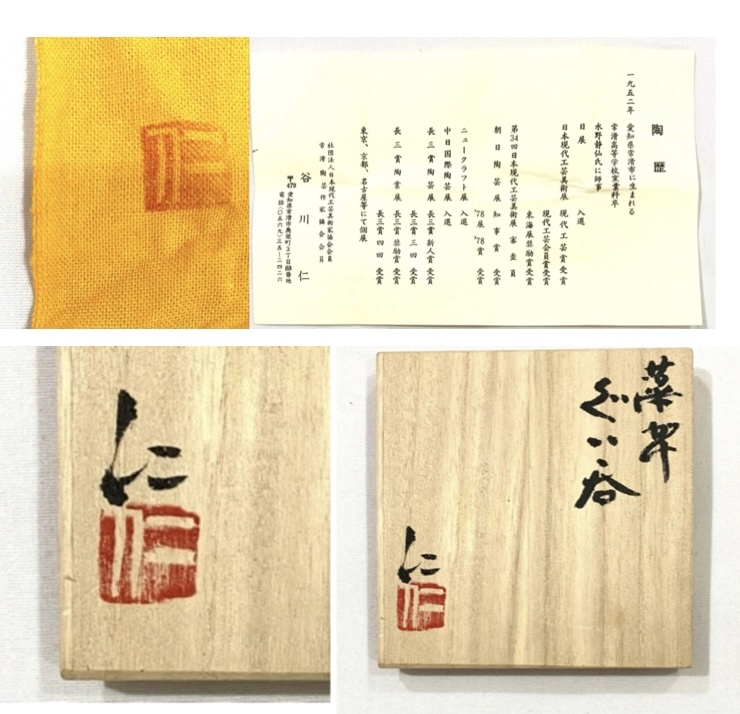 仁
陶歴
一九五二年 愛知県常滑市に生まれる
常滑高等学校窯業科卒
水野静仙氏に師事
日展 入選
日本現代工芸美術展 現代工芸賞受賞
現代工芸会員賞受賞
東海展奨励賞受賞
第34回日本現代工芸美術展 審査員
朝日陶芸展 知事賞 受賞
'78展 '78賞 受賞
ニュークラフト展 入選
中日国際陶芸展 入選
長三賞陶芸展 長三賞新人賞受賞
長三賞三回 受賞
長三賞陶業展 長三賞奨励賞受賞
長三賞四回 受賞
東京、京都、名古屋等にて個展
社団法人日本現代工芸美術家協会会員
常滑陶芸作家協会会員
谷川 仁
〒479 愛知県常滑市奥栄町3丁目88番地
電話(〇五六九)三五-二四二六
仁
仁
ぐい呑
仁
仁